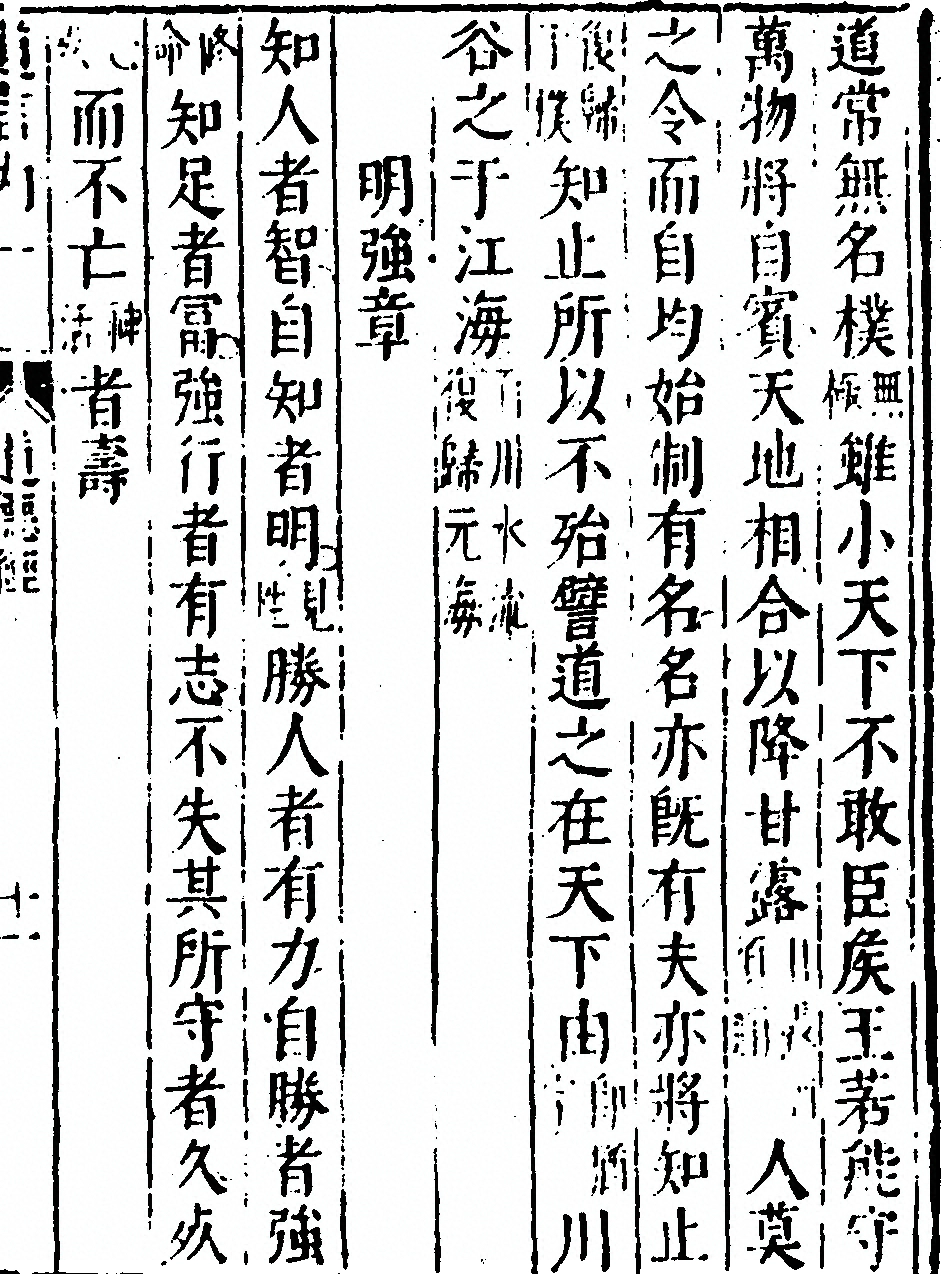 道常無名樸無極雖小天下不敢臣侯王若能守
萬物將自賓天地相合以降甘露人莫
之令而自均始制有名名亦既有夫亦將知止
復歸于樸知止所以不殆譬道之在天下由即猶川
谷之于江海川水流復歸元海
明強章
知人者智自知者明見性勝人者有力自勝者強
修命知足者富強行者有志不失其所守者久死
而不亡神活者壽
十一